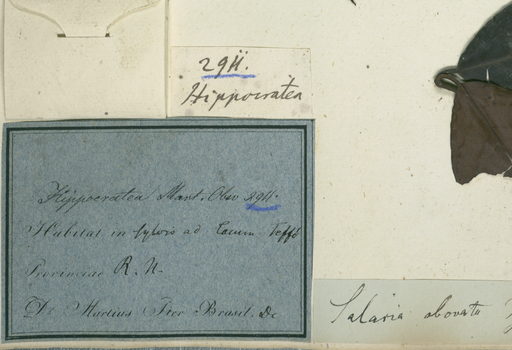 2911.
Hippocratea
Hippocratea Mart. Obs. 2911.
Habitat in sylvis ad Teffé
Provinciae R. N.
Dr. Martius Iter Brasil. Dc
Salacia obovata